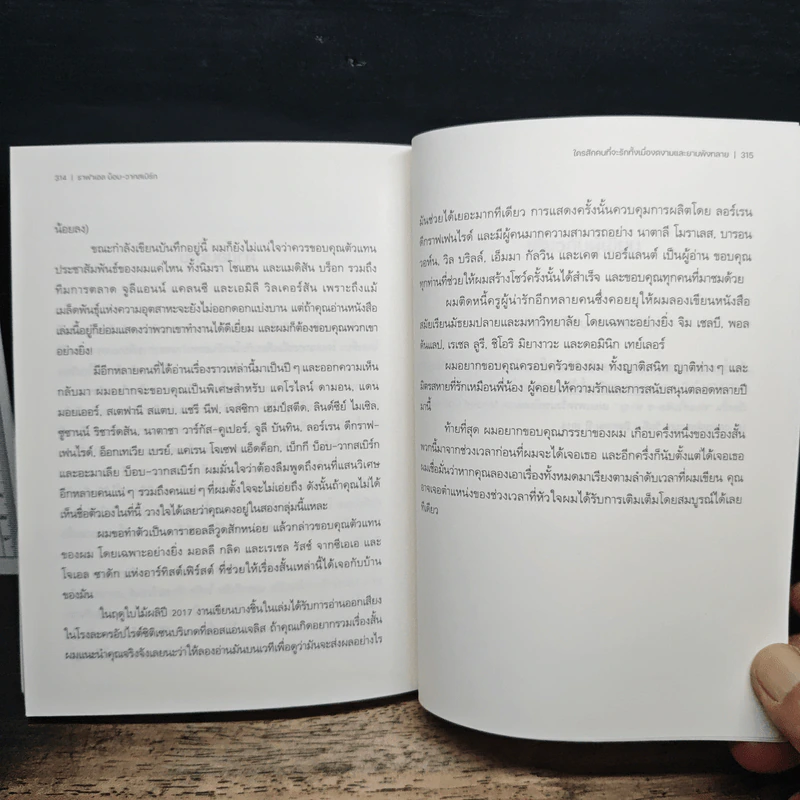 314 | ราฟาเอล บ็อบ-วากสเบิร์ก
น้อยลง)
ขณะกำลังเขียนบันทึกอยู่นี้ ผมก็ยังไม่แน่ใจว่าควรขอบคุณตัวแทน
ประชาสัมพันธ์ของผมแค่ไหน ทั้งนิมรา โชแฮน และแมดิสัน บร็อก รวมถึง
ทีมการตลาด จูลีแอนน์ แคลนซี และเอมิลี วิลเคอร์สัน เพราะถึงแม้
เมล็ดพันธุ์แห่งความอุตสาหะจะยังไม่ออกดอกแบ่งบาน แต่ถ้าคุณอ่านหนังสือ
เล่มนี้อยู่ก็ย่อมแสดงว่าพวกเขาทำงานได้ดีเยี่ยม และผมก็ต้องขอบคุณพวกเขา
อย่างยิ่ง!
มีอีกหลายคนที่ได้อ่านเรื่องราวเหล่านี้มาเป็นปี ๆ และออกความเห็น
กลับมา ผมอยากจะขอบคุณเป็นพิเศษสำหรับ แคโรไลน์ ดามอน, แดน
มอยเออร์, สเตฟานี สแตบ, แชรี นีฟ, เจสซิกา เฮมป์สตีด, ลินด์ซีย์ ไมเซิล,
ซูซานน์ ริชาร์ดสัน, นาตาชา วาร์กัส-คูเปอร์, จูลี บันทิน, ลอร์เรน ดีกราฟ-
เฟนไรด์, อ็อกเทเวีย เบรย์, แคเรน โจเซฟ แอ็ดค็อก, เบ็กกี บ็อบ-วากสเบิร์ก
และอะมาเลีย บ็อบ-วากสเบิร์ก ผมมั่นใจว่าต้องลืมพูดถึงคนที่แสนวิเศษ
อีกหลายคนแน่ ๆ รวมถึงคนแย่ ๆ ที่ผมตั้งใจจะไม่เอ่ยถึง ดังนั้นถ้าคุณไม่ได้
เห็นชื่อตัวเองในที่นี้ วางใจได้เลยว่าคุณคงอยู่ในสองกลุ่มนี้แหละ
ผมขอทำตัวเป็นดาราฮอลลีวูดสักหน่อย แล้วกล่าวขอบคุณตัวแทน
ของผม โดยเฉพาะอย่างยิ่ง มอลลี กลิค และเรเชล รัสช์ จากซีเอเอ และ
โจเอล ซาดัก แห่งอาร์ทิสต์เฟิร์สต์ ที่ช่วยให้เรื่องสั้นเหล่านี้ได้เจอกับบ้าน
ของมัน
ในฤดูใบไม้ผลิปี 2017 งานเขียนบางชิ้นในเล่มได้รับการอ่านออกเสียง
ในโรงละครอัปไรต์ซิติเซนบริเกดที่ลอสแอนเจลิส ถ้าคุณเกิดอยากรวมเรื่องสั้น
ผมแนะนำคุณจริงจังเลยนะว่าให้ลองอ่านมันบนเวทีเพื่อดูว่ามันจะส่งผลอย่างไร
ใครสักคนที่จะรักทั้งเมื่องดงามและยามพังทลาย | 315
มันช่วยได้เยอะมากทีเดียว การแสดงครั้งนั้นควบคุมการผลิตโดย ลอร์เรน
ดีกราฟเฟนไรด์ และมีผู้คนมากความสามารถอย่าง นาตาลี โมราเลส, บารอน
วอห์น, วิล บริลล์, เอ็มมา กัลวิน และเคต เบอร์แลนต์ เป็นผู้อ่าน ขอบคุณ
ทุกท่านที่ช่วยให้ผมสร้างโชว์ครั้งนั้นได้สำเร็จ และขอบคุณทุกคนที่มาชมด้วย
ผมติดหนี้ครูผู้น่ารักอีกหลายคนซึ่งคอยยุให้ผมลองเขียนหนังสือ
สมัยเรียนมัธยมปลายและมหาวิทยาลัย โดยเฉพาะอย่างยิ่ง จิม เชลบี, พอล
ดันแลป, เรเชล ลูรี, ชิโอริ มิยางาวะ และดอมินิก เทย์เลอร์
ผมอยากขอบคุณครอบครัวของผม ทั้งญาติสนิท ญาติห่าง ๆ และ
มิตรสหายที่รักเหมือนพี่น้อง ผู้คอยให้ความรักและการสนับสนุนตลอดหลายปี
มานี้
ท้ายที่สุด ผมอยากขอบคุณภรรยาของผม เกือบครึ่งหนึ่งของเรื่องสั้น
พวกนี้มาจากช่วงเวลาก่อนที่ผมจะได้เจอเธอ และอีกครึ่งก็นับตั้งแต่ได้เจอเธอ
ผมเชื่อมั่นว่าหากคุณลองเอาเรื่องทั้งหมดมาเรียงตามลำดับเวลาที่ผมเขียน คุณ
อาจเจอตำแหน่งของช่วงเวลาที่หัวใจผมได้รับการเติมเต็มโดยสมบูรณ์ได้เลย
ทีเดียว